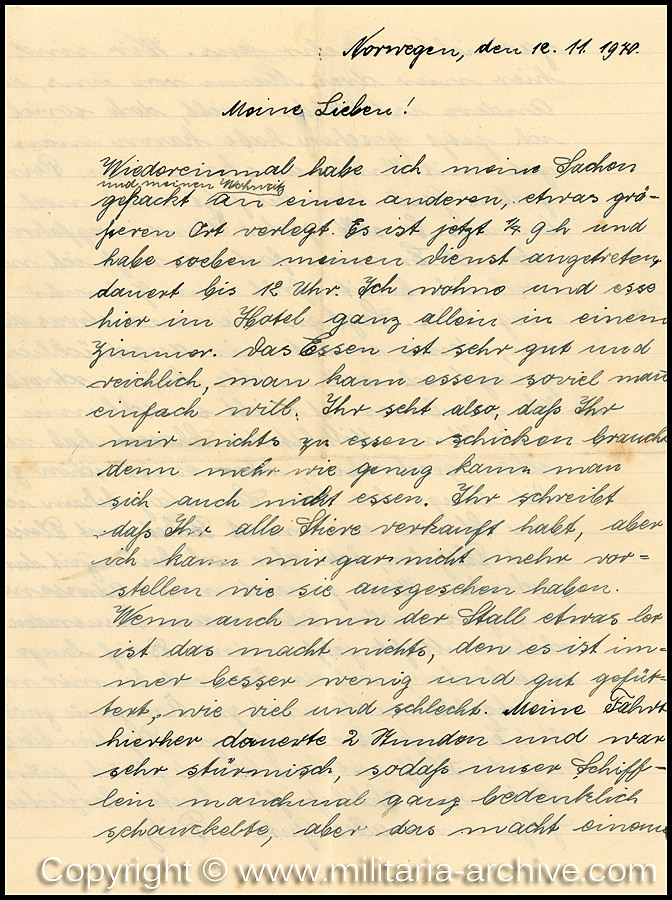 Norwegen, den 12. 11. 1940.
Meine Lieben!
Wiedereinmal habe ich meine Sachen
und meinen Wohnsitz
gepackt an einen anderen, etwas grö-
ßeren Ort verlegt. Es ist jetzt ¼ 9 h und
habe soeben meinen Dienst angetreten,
dauert bis 12 Uhr. Ich wohne und esse
hier im Hotel ganz allein in einem
Zimmer. Das Essen ist sehr gut und
reichlich, man kann essen soviel man
einfach will. Ihr seht also, daß Ihr
mir nichts zu essen schicken braucht
denn mehr wie genug kann man
sich auch nicht essen. Ihr schreibt
daß Ihr alle Stiere verkauft habt, aber
ich kann mir gar nicht mehr vor=
stellen wie sie ausgesehen haben.
Wenn auch nun der Stall etwas ler
ist das macht nichts, den es ist im-
mer besser wenig und gut gefüt-
tert, wie viel und schlecht. Meine Fahrt
hierher dauerte 2 Stunden und war
sehr stürmisch, sodaß unser Schiff-
lein manchmal ganz bedenklich
schauckelte, aber das macht einem
Copyright © www.militaria-archive.com